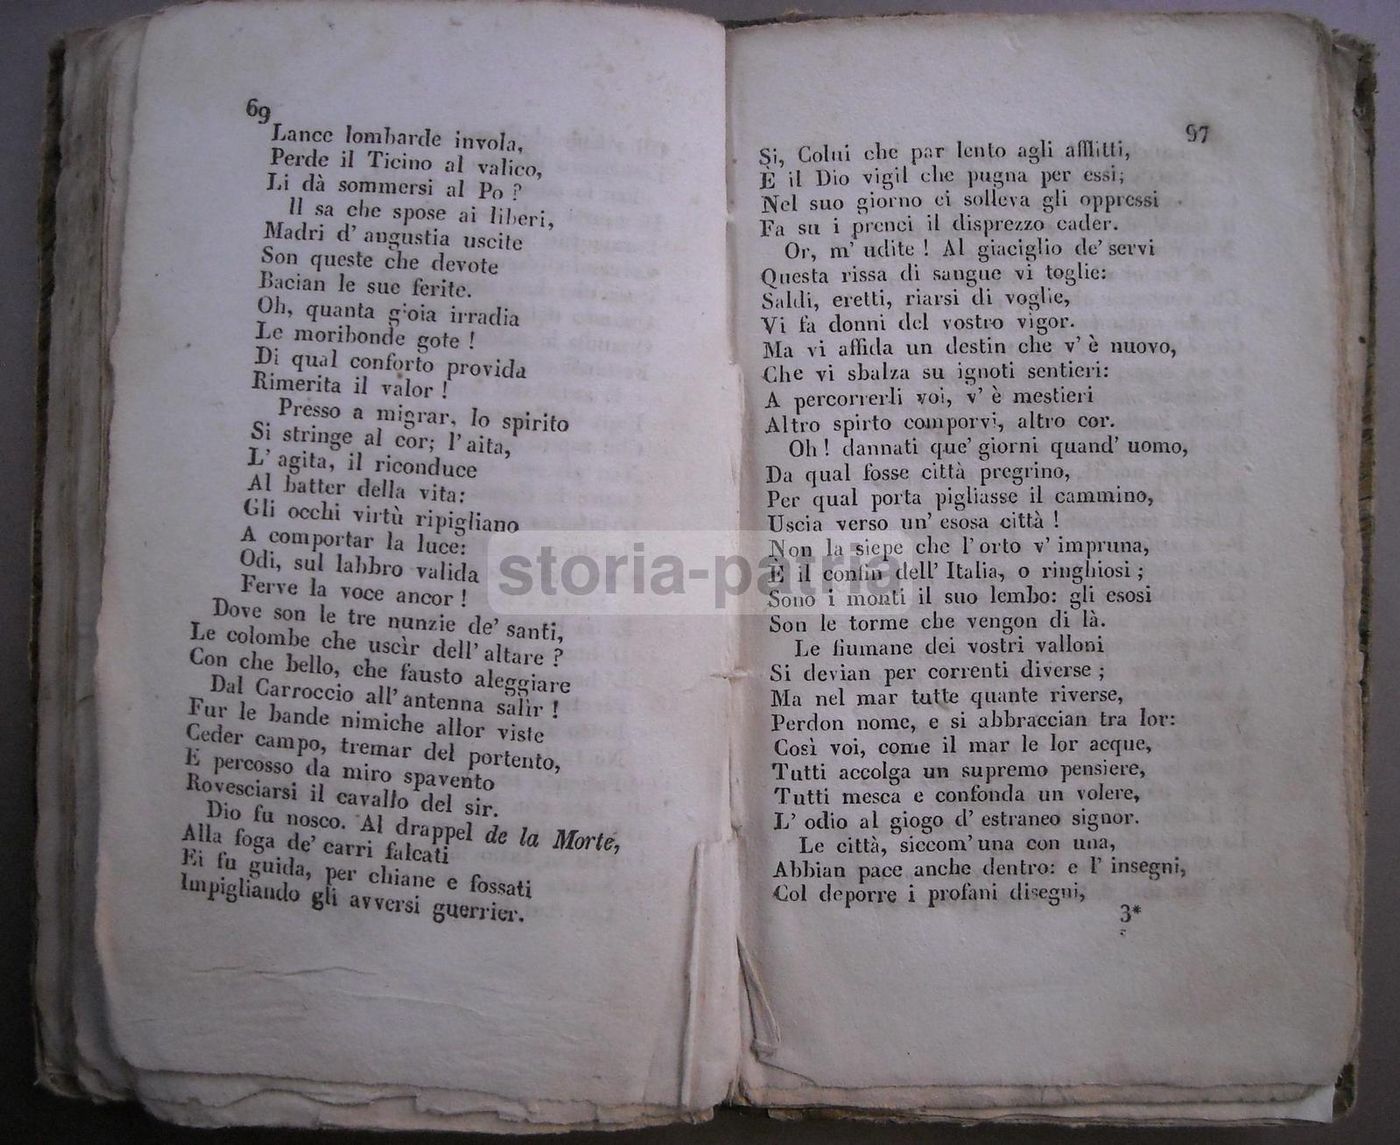 69
Lance lombarde invola,
Perde il Ticino al valico,
Li dà sommersi al Po ?
Il sa che spose ai liberi,
Madri d' angustia uscite
Son queste che devote
Bacian le sue ferite.
Oh, quanta gioia irradia
Le moribonde gote !
Di qual conforto provida
Rimerita il valor !
Presso a migrar, lo spirito
Si stringe al cor; l' aita,
L' agita, il riconduce
Al batter della vita:
Gli occhi virtù ripigliano
A comportar la luce:
Odi, sul labbro valida
Ferve la voce ancor !
Dove son le tre nunzie de' santi,
Le colombe che uscìr dell' altare ?
Con che bello, che fausto aleggiare
Dal Carroccio all' antenna salìr !
Fur le bande nimiche allor viste
Ceder campo, tremar del portento,
E percosso da miro spavento
Rovesciarsi il cavallo del sir.
Dio fu nosco. Al drappel de la Morte,
Alla foga de' carri falcati
Ei fu guida, per chiane e fossati
Impigliando gli avversi guerrier.
97
Sì, Colui che par lento agli afflitti,
È il Dio vigil che pugna per essi;
Nel suo giorno ei solleva gli oppressi
Fa su i prenci il disprezzo cader.
Or, m' udite ! Al giaciglio de' servi
Questa rissa di sangue vi toglie:
Saldi, eretti, riarsi di voglie,
Vi fa donni del vostro vigor.
Ma vi affida un destin che v' è nuovo,
Che vi sbalza su ignoti sentieri:
A percorrerli voi, v' è mestieri
Altro spirto comporvi, altro cor.
Oh ! dannati que' giorni quand' uomo,
Da qual fosse città pregrino,
Per qual porta pigliasse il cammino,
Uscia verso un' esosa città !
Non la siepe che l' orto v' impruna,
È il confin dell' Italia, o ringhiosi ;
Sono i monti il suo lembo: gli esosi
Son le torme che vengon di là.
Le fiumane dei vostri valloni
Si devian per correnti diverse ;
Ma nel mar tutte quante riverse,
Perdon nome, e si abbraccian tra lor:
Così voi, come il mar le lor acque,
Tutti accolga un supremo pensiere,
Tutti mesca e confonda un volere,
L' odio al giogo d' estraneo signor.
Le città, siccom' una con una,
Abbian pace anche dentro: e l' insegni,
Col deporre i profani disegni,
3*
storia-patria